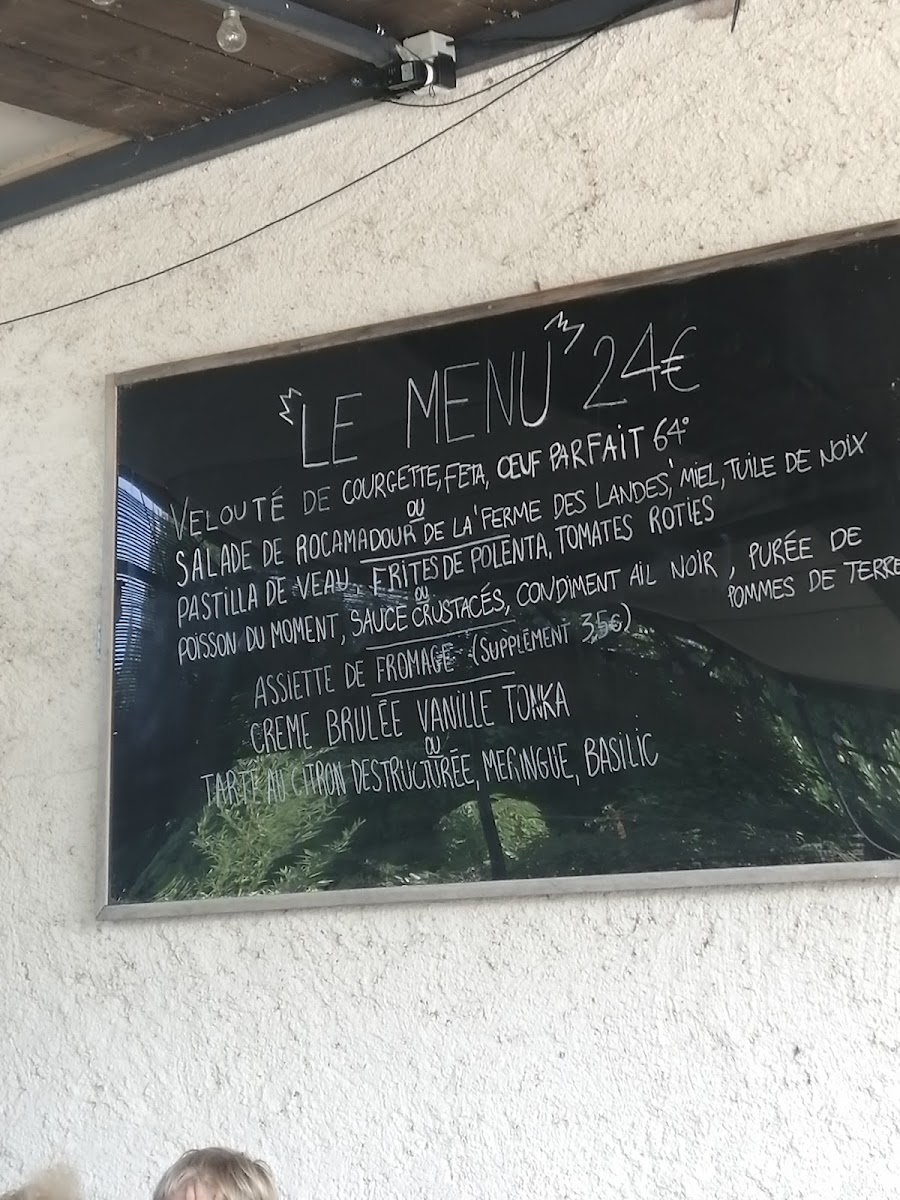 "LE MENU" 24€
VELOUTÉ DE COURGETTE, FETA, ŒUF PARFAIT 64°
OU
SALADE DE ROCAMADOUR DE LA 'FERME DES LANDES', MIEL, TUILE DE NOIX
PASTILLA DE VEAU, FRITES DE POLENTA, TOMATES ROTIES
OU
POISSON DU MOMENT, SAUCE CRUSTACÉS, CONDIMENT AIL NOIR, PURÉE DE
POMMES DE TERRE
ASSIETTE DE FROMAGE (SUPPLÉMENT 3,5€)
CREME BRULÉE VANILLE TONKA
OU
TARTE AU CITRON DESTRUCTURÉE, MERINGUE, BASILIC